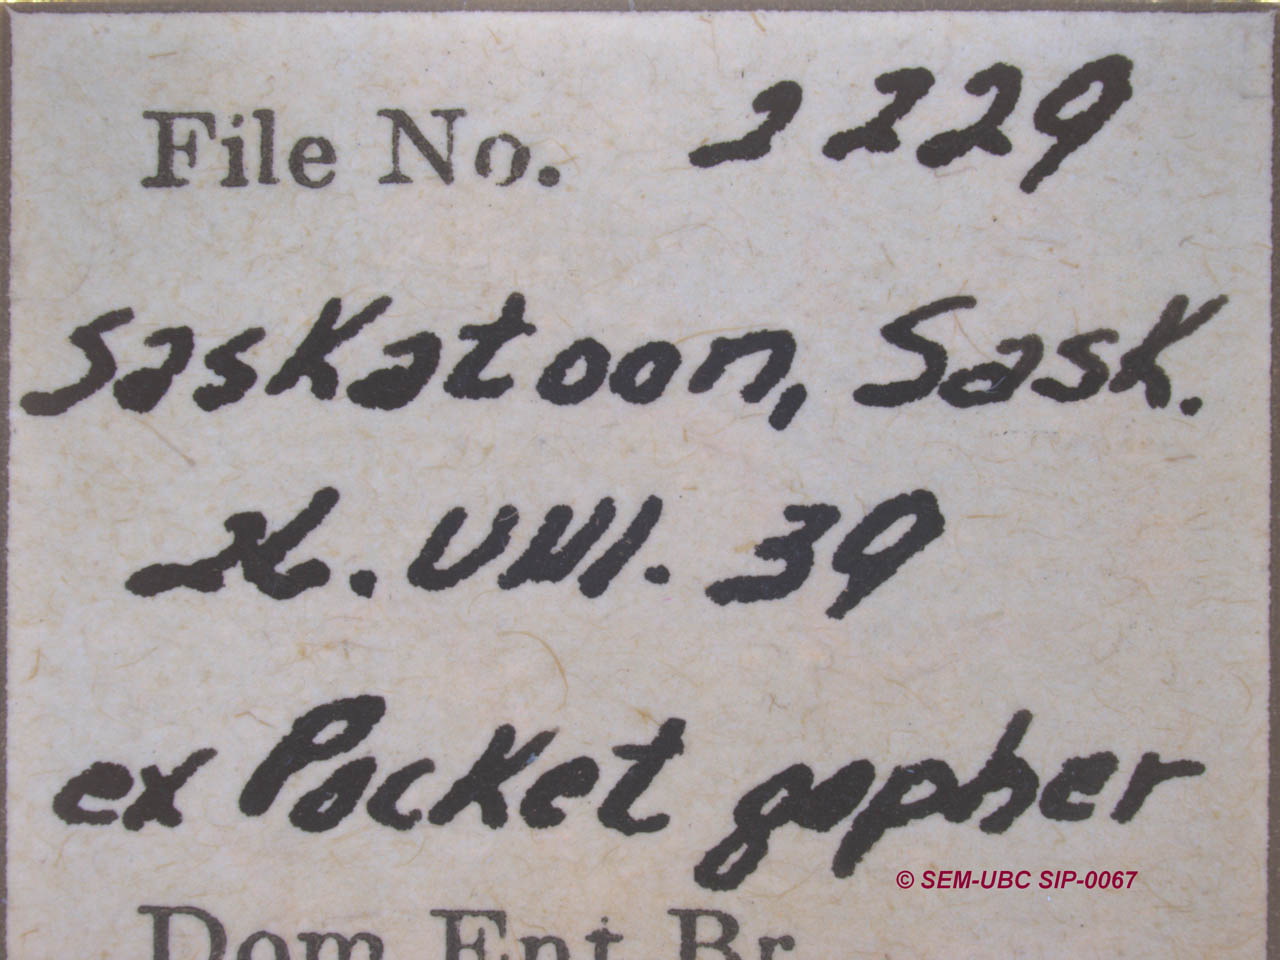 File No. 2229
Saskatoon, Sask.
26. VIII. 39
ex Pocket gopher
© SEM-UBC SIP-0067
Dom Ent Br